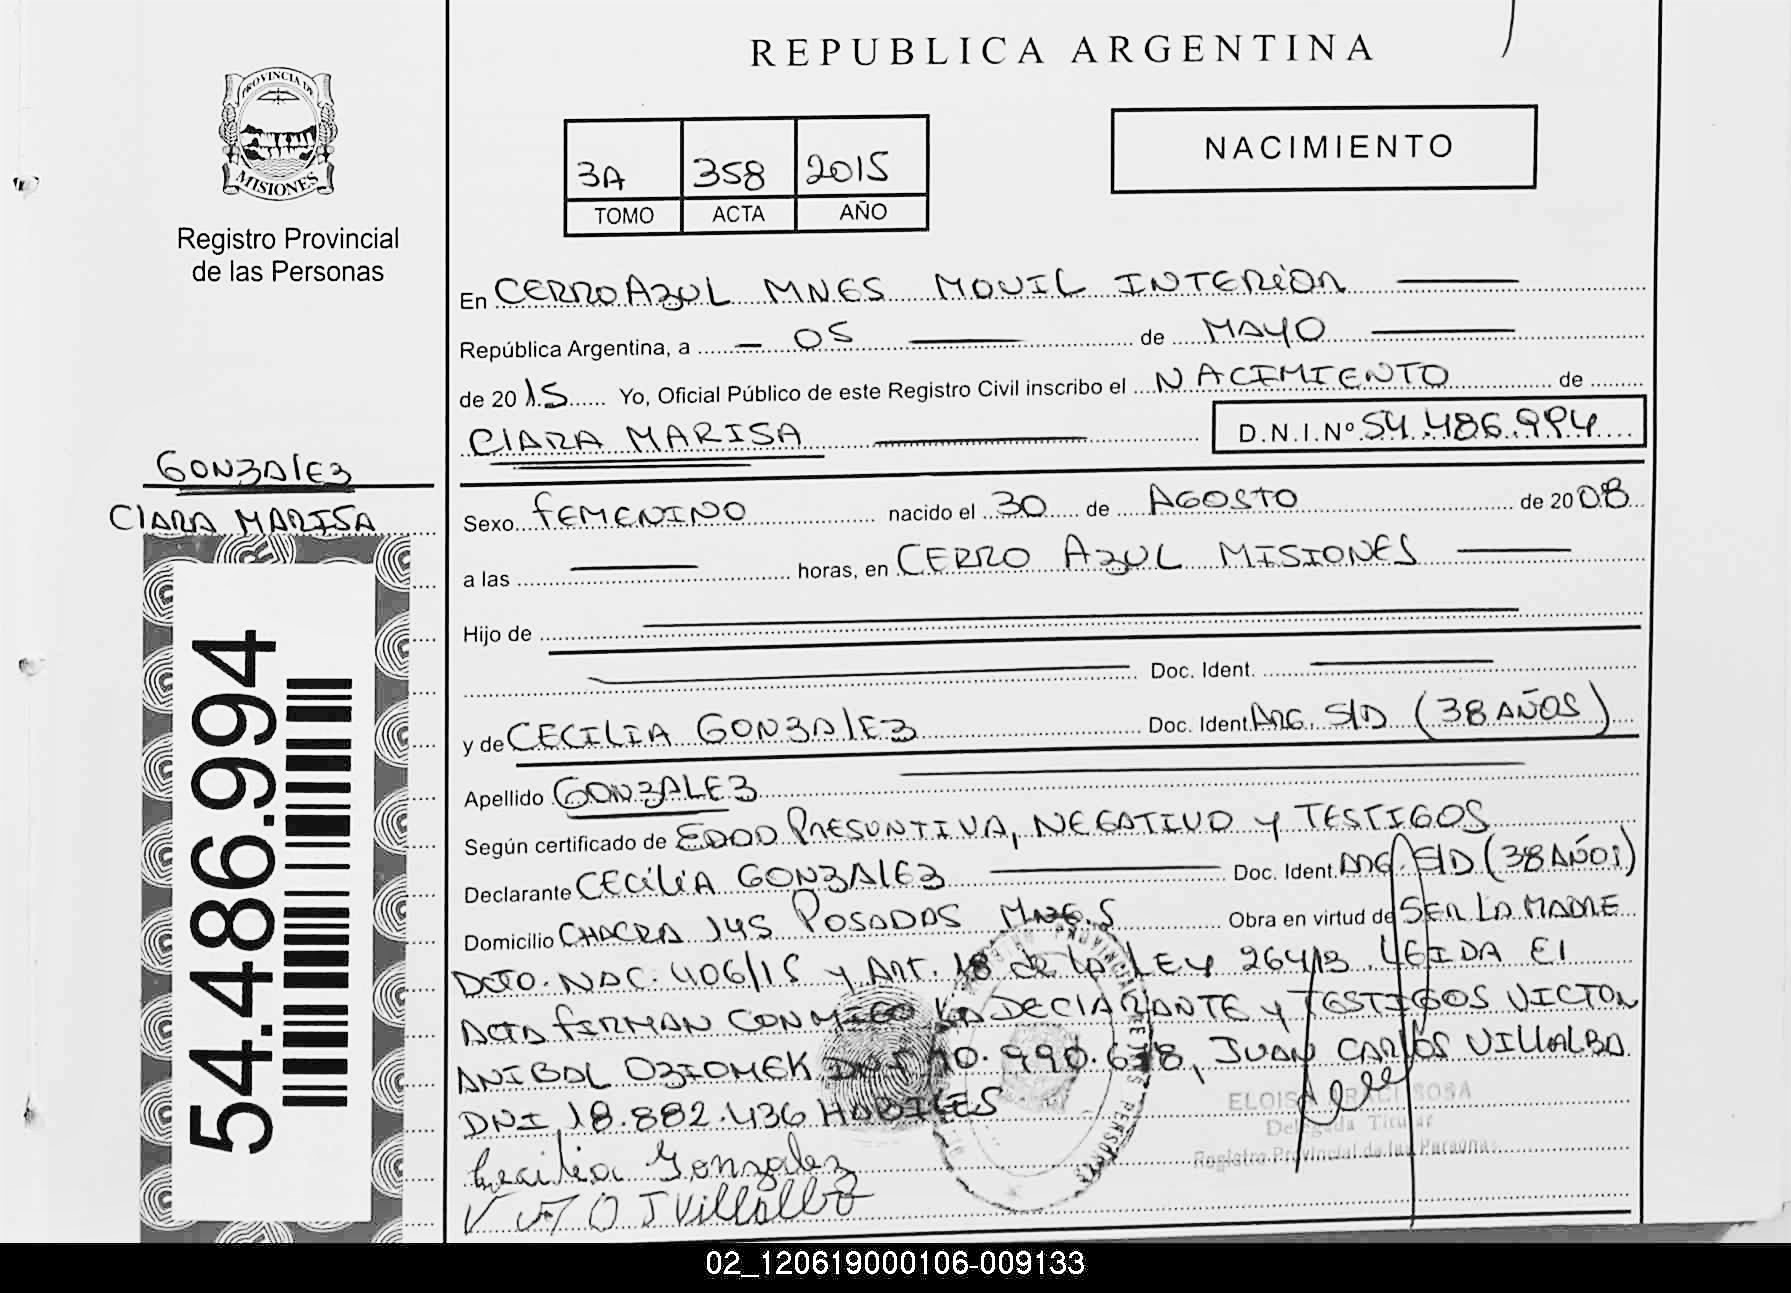 REPUBLICA ARGENTINA
PROVINCIA DE
MISIONES
Registro Provincial
de las Personas
3A 358 2015
TOMO ACTA AÑO
NACIMIENTO
En CERRO AZUL MNES MOVIL INTERIOR
República Argentina, a 05 de MAYO
de 2015 Yo, Oficial Público de este Registro Civil inscribo el NACIMIENTO de
CLARA MARISA D.N.I.Nº 54.486.994
GONZALEZ
CLARA MARISA
54.486.994
Sexo FEMENINO nacido el 30 de AGOSTO de 2008
a las horas, en CERRO AZUL MISIONES
Hijo de
Doc. Ident.
y de CECILIA GONZALEZ Doc. Ident. ARG. S/D (38 AÑOS)
Apellido GONZALEZ
Según certificado de EDAD PRESUNTIVA, NEGATIVO y TESTIGOS
Declarante CECILIA GONZALEZ Doc. Ident. ARG. S/D (38 AÑOS)
Domicilio CHACRA 145 POSADAS MNES Obra en virtud de SER LA MADRE
DCTO. NAC. 406/15 y ART. 18 de la LEY 26413. LEIDA EL
ACTA FIRMAN CONMIGO LA DECLARANTE y TESTIGOS VICTOR
ANIBAL OZIOMEK DNI 10.990.678, JUAN CARLOS VILLALBA
DNI 18.882.436 HABILES
ELOISA SOSA
Delegada Titular
Registro Provincial de las Personas
Cecilia Gonzalez
JVillalba
02_120619000106-009133